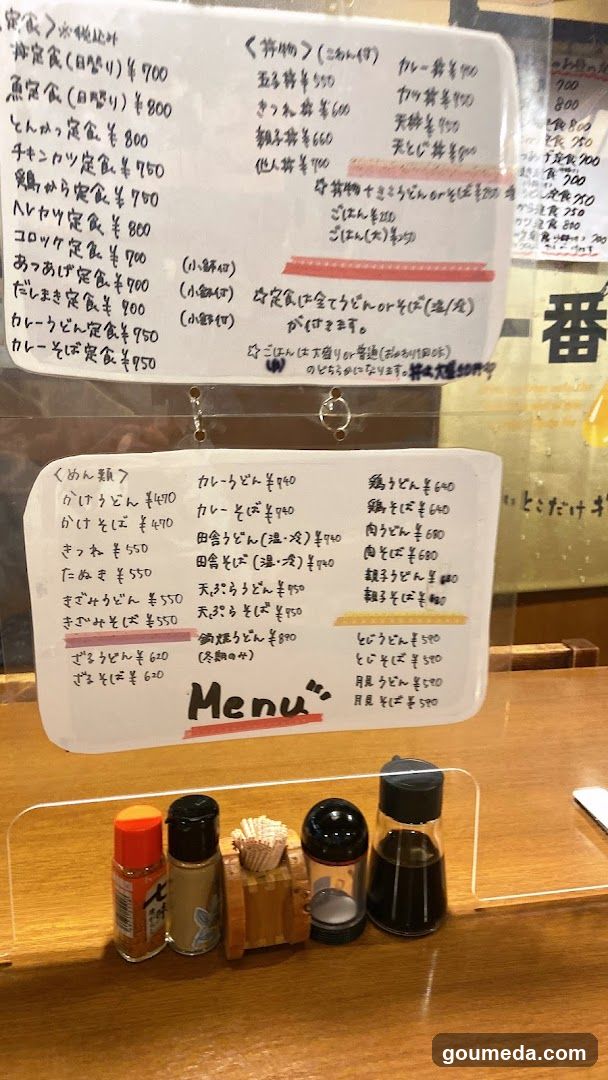 定食>※税込み
丼定食(日替り)¥700
魚定食(日替り)¥800
とんかつ定食¥800
チキンカツ定食¥750
鶏から定食¥750
ヘレカツ定食¥800
コロッケ定食¥700
あつあげ定食¥700 (小鉢付)
だしまき定食¥700 (小鉢付)
カレーうどん定食¥750 (小鉢付)
カレーそば定食¥750
<丼物>(こぬん付)
玉子丼¥550
きつね丼¥600
親子丼¥660
他人丼¥700
カレー丼¥700
カツ丼¥750
天丼¥750
天とじ丼¥800
☆丼物+きざみうどんorそば¥250増
ごはん¥200
ごはん(大)¥250
☆定食は全てうどんorそば(温/冷)
が付きます。
☆ごはんは大盛りor普通(おかわり1回OK)
のどちらかになります。
<めん類>
かけうどん¥470
かけそば¥470
きつね¥550
たぬき¥550
きざみうどん¥550
きざみそば¥550
ざるうどん¥620
ざるそば¥620
カレーうどん¥740
カレーそば¥740
田舎うどん(温・冷)¥740
田舎そば(温・冷)¥740
天ぷらうどん¥750
天ぷらそば¥750
鍋焼うどん¥890
(冬期のみ)
鶏うどん¥640
鶏そば¥640
肉うどん¥680
肉そば¥680
親子うどん
親子そば
とじうどん¥590
とじそば¥590
月見うどん¥590
月見そば¥590
Menu
一番
とこだけ
goumeda.com